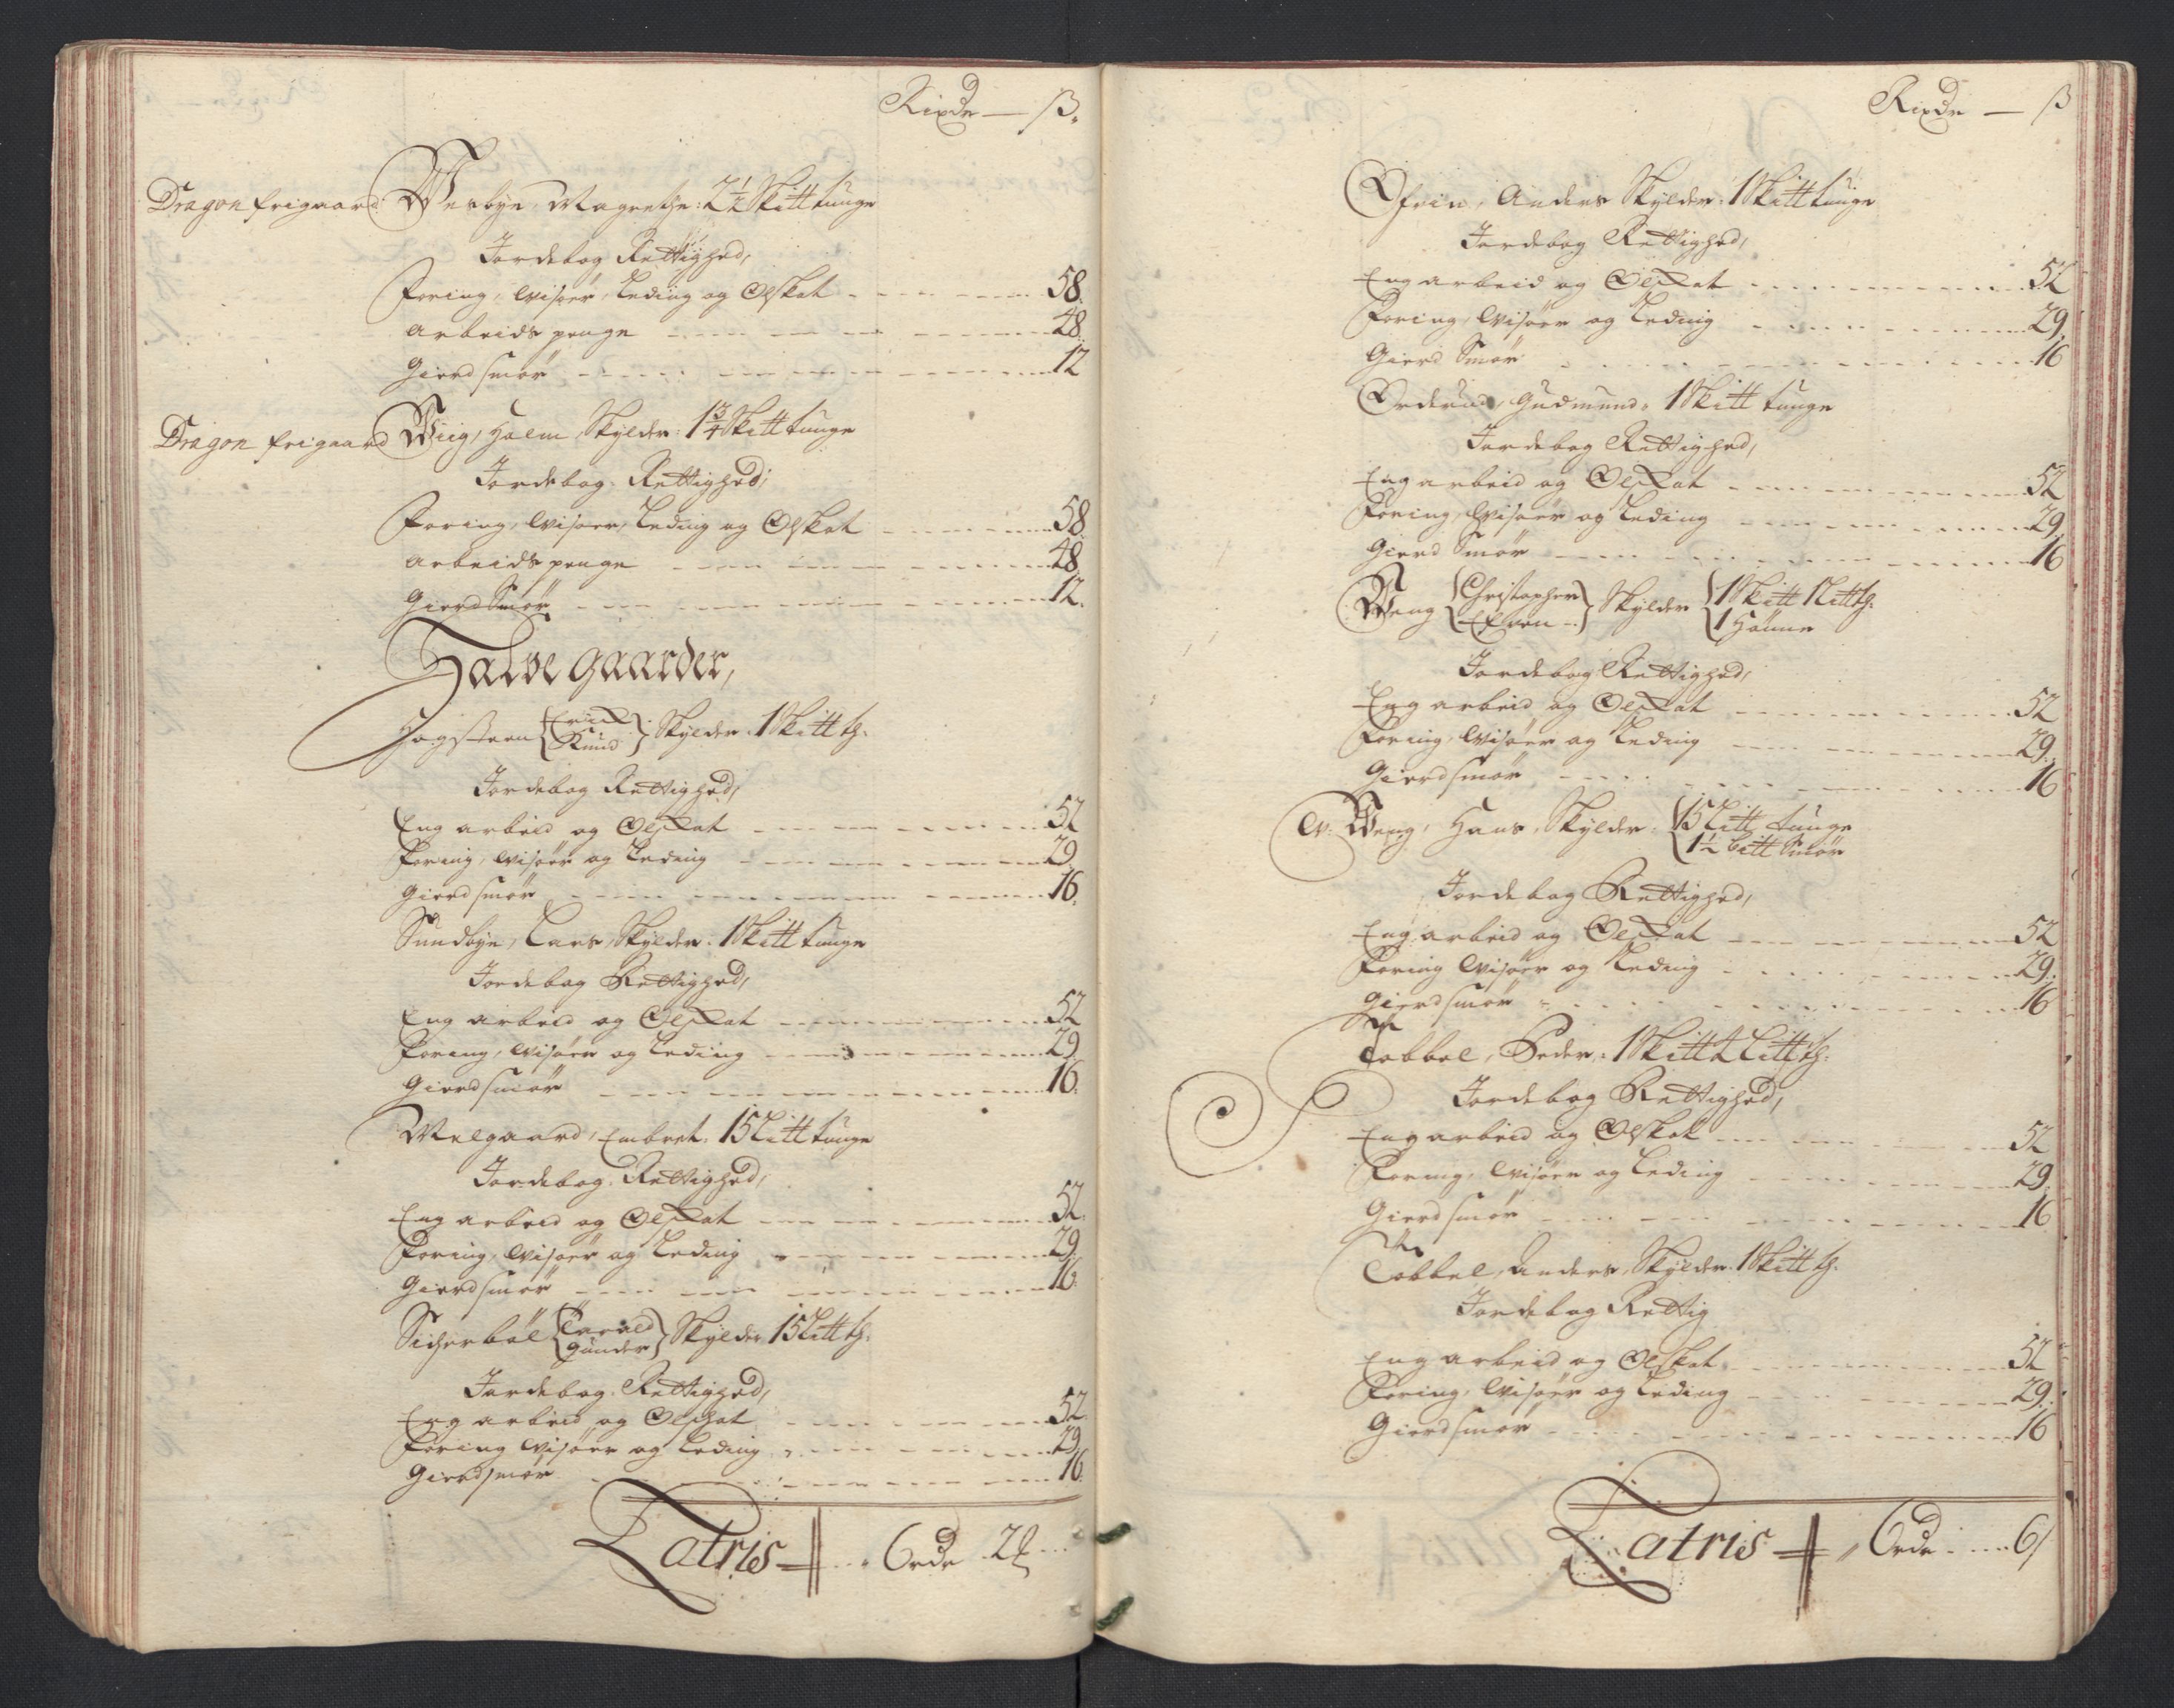 Rixdr — ß.
Dragon frigaard. Werbye, Magrethe: 2½ Skitt tunge
Jordebog Rettighed,
Foring, Wisøer, Leding og Olskat 58.
Arbeids penge 48.
Gierd smør 12
Dragon frigaard Wiig, Halm, Skylder: 1¾ Skitt tunge
Jordebog Rettighed,
Foring, Wisøer, Leding og Olskat 58.
Arbeids penge 48.
Gierd Smør 12.
Halve gaarder,
Hogsteen {Erich Knud} Skylder. 1 Skitt tg.
Jordebog Rettighed,
Eng arbeid og Olskat 52
Foring, Wisøer og Leding 29.
Gierd smør 16.
Sundbye, Lars, Skylder. 1 Skitt tunge
Jordebog Rettighed,
Eng arbeid og Olskat 52
Foring, Wisøer og Leding 29.
Gierd smør 16.
Melgaard, Embret. 15 Litt tunge
Jordebog Rettighed,
Eng arbeid og Olskat 52.
Foring, Wisøer og Leding 29.
Gierd smør 16.
{Gunder} Skylder 15 Litt tg.
Jordebog Rettighed,
Eng arbeid og Olskat 52.
Foring Wisøer og Leding 29.
Gierd smør 16.
Latris 6 rdr
Rixdr — ß
Anders Skylder: 1 Skitt tunge
Jordebog Rettighed,
Eng arbeid og Olskat 52
Foring, Wisøer og Leding 29.
Gierd Smør 16
Ørderud, Gudmund. 1 Skitt tunge
Jordebog Rettighed,
Eng arbeid og Olskat 52
Foring, Wisøer og Leding 29.
Gierd Smør 16
Weng {Christopher Even} Skylder {1 Skitt 1 Litt tg. 1 Hønne
Jordebog Rettighed,
Eng arbeid og Olskat 52
Foring, Wisøer og Leding 29.
Gierd smør 16
W: Weng, Hans, Skylder: {15 Litt tunge 1½ bitt Smør
Jordebog Rettighed,
Eng arbeid og Olskat 52
Foring Wisøer og Leding 29.
Gierd smør 16
Tobbøl, Peder: 1 Skitt 2 Litt tg.
Jordebog Rettighed,
Eng arbeid og Olskat 52
Foring, Wisøer og Leding 29.
Gierd smør 16
Tobbøl, Anders, Skylder. 1 Skitt tg.
Jordebog Rettig
Eng arbeid og Olskat 52
Foring, Wisøer og Leding 29.
Gierd smør 16
Latris 6 rdr 61